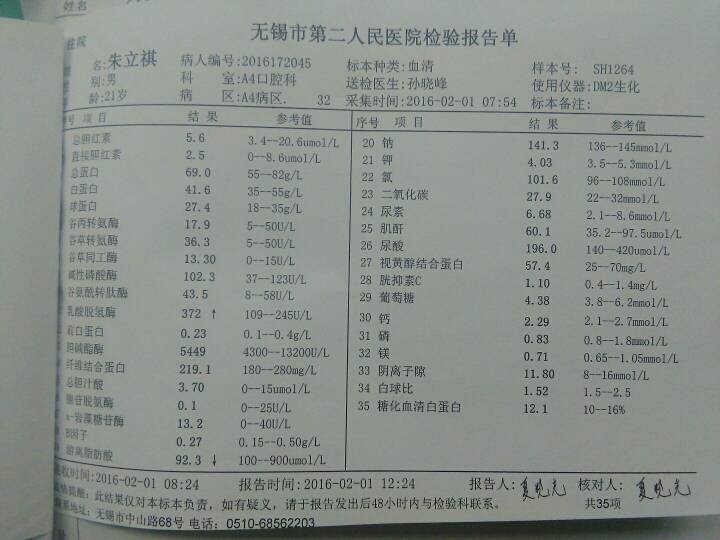 姓名
无锡市第二人民医院检验报告单
住院
名:朱立祺 病人编号:2016172045 标本种类:血清 样本号: SH1264
别:男 科 室:A4口腔科 送检医生:孙晓峰 使用仪器:DM2生化
龄:21岁 病 区:A4病区. 32 采集时间:2016-02-01 07:54 标本备注:
号 项目 结 果 参考值
总胆红素 5.6 3.4--20.6umol/L
直接胆红素 2.5 0--8.6umol/L
总蛋白 69.0 55--82g/L
白蛋白 41.6 35--55g/L
球蛋白 27.4 18--35g/L
谷丙转氨酶 17.9 5--50U/L
谷草转氨酶 36.3 5--50U/L
谷草同工酶 13.30 0--15U/L
碱性磷酸酶 102.3 37--123U/L
谷氨酰转肽酶 43.5 8--58U/L
乳酸脱氢酶 372 ↑ 109--245U/L
前白蛋白 0.23 0.1--0.4g/L
胆碱酯酶 5449 4300--13200U/L
纤维结合蛋白 219.1 180--280mg/L
总胆汁酸 3.70 0--15umol/L
腺苷脱氨酶 0.1 0--25U/L
α-岩藻糖苷酶 13.2 0--40U/L
B因子 0.27 0.15--0.50g/L
游离脂肪酸 92.3 ↓ 100--900umol/L
序号 项 目 结 果 参考值
20 钠 141.3 136--145mmol/L
21 钾 4.03 3.5--5.3mmol/L
22 氯 101.6 96--108mmol/L
23 二氧化碳 27.9 22--32mmol/L
24 尿素 6.68 2.1--8.6mmol/L
25 肌酐 60.1 35.2--97.5umol/L
26 尿酸 196.0 140--420umol/L
27 视黄醇结合蛋白 57.4 25--70mg/L
28 胱抑素C 1.10 0.4--1.4mg/L
29 葡萄糖 4.38 3.8--6.2mmol/L
30 钙 2.29 2.1--2.7mmol/L
31 磷 0.83 0.8--1.8mmol/L
32 镁 0.71 0.65--1.05mmol/L
33 阴离子隙 11.80 8--16mmol/L
34 白球比 1.52 1.5--2.5
35 糖化血清白蛋白 12.1 10--16%
收时间:2016-02-01 08:24 报告时间:2016-02-01 12:24 报告人: 核对人:
提醒: 此结果仅对本标本负责, 如有疑义, 请于报告发出后48小时内与检验科联系。 共35项
系地址: 无锡市中山路68号 电话: 0510-68562203